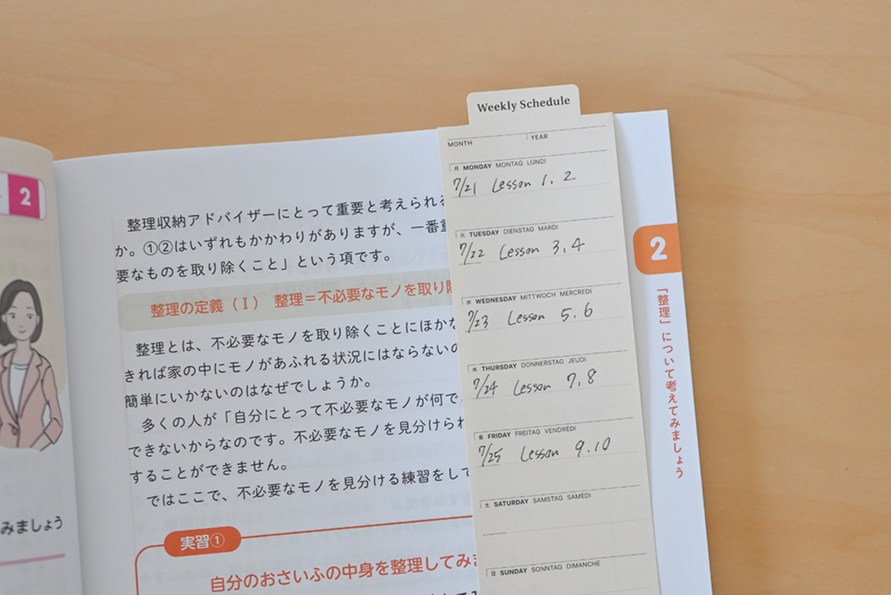 2
みましょう
整理収納アドバイザーにとって重要と考えられる
か。①②はいずれもかかわりがありますが、一番重
要なものを取り除くこと」という項です。
整理の定義（Ⅰ） 整理＝不必要なモノを取り除
整理とは、不必要なモノを取り除くことにほかな
きれば家の中にモノがあふれる状況にはならないの
簡単にいかないのはなぜでしょうか。
多くの人が「自分にとって不必要なモノが何で
できないからなのです。不必要なモノを見分けられ
することができません。
ではここで、不必要なモノを見分ける練習をして
実習①
自分のおさいふの中身を整理してみま
Weekly Schedule
MONTH YEAR
月 MONDAY MONTAG LUNDI
7/21 Lesson 1. 2
火 TUESDAY DIENSTAG MARDI
7/22 Lesson 3. 4
水 WEDNESDAY MITTWOCH MERCREDI
7/23 Lesson 5. 6
木 THURSDAY DONNERSTAG JEUDI
7/24 Lesson 7. 8
金 FRIDAY FREITAG VENDREDI
7/25 Lesson 9. 10
土 SATURDAY SAMSTAG SAMEDI
日 SUNDAY SONNTAG DIMANCHE
2
「整理」について考えてみましょう